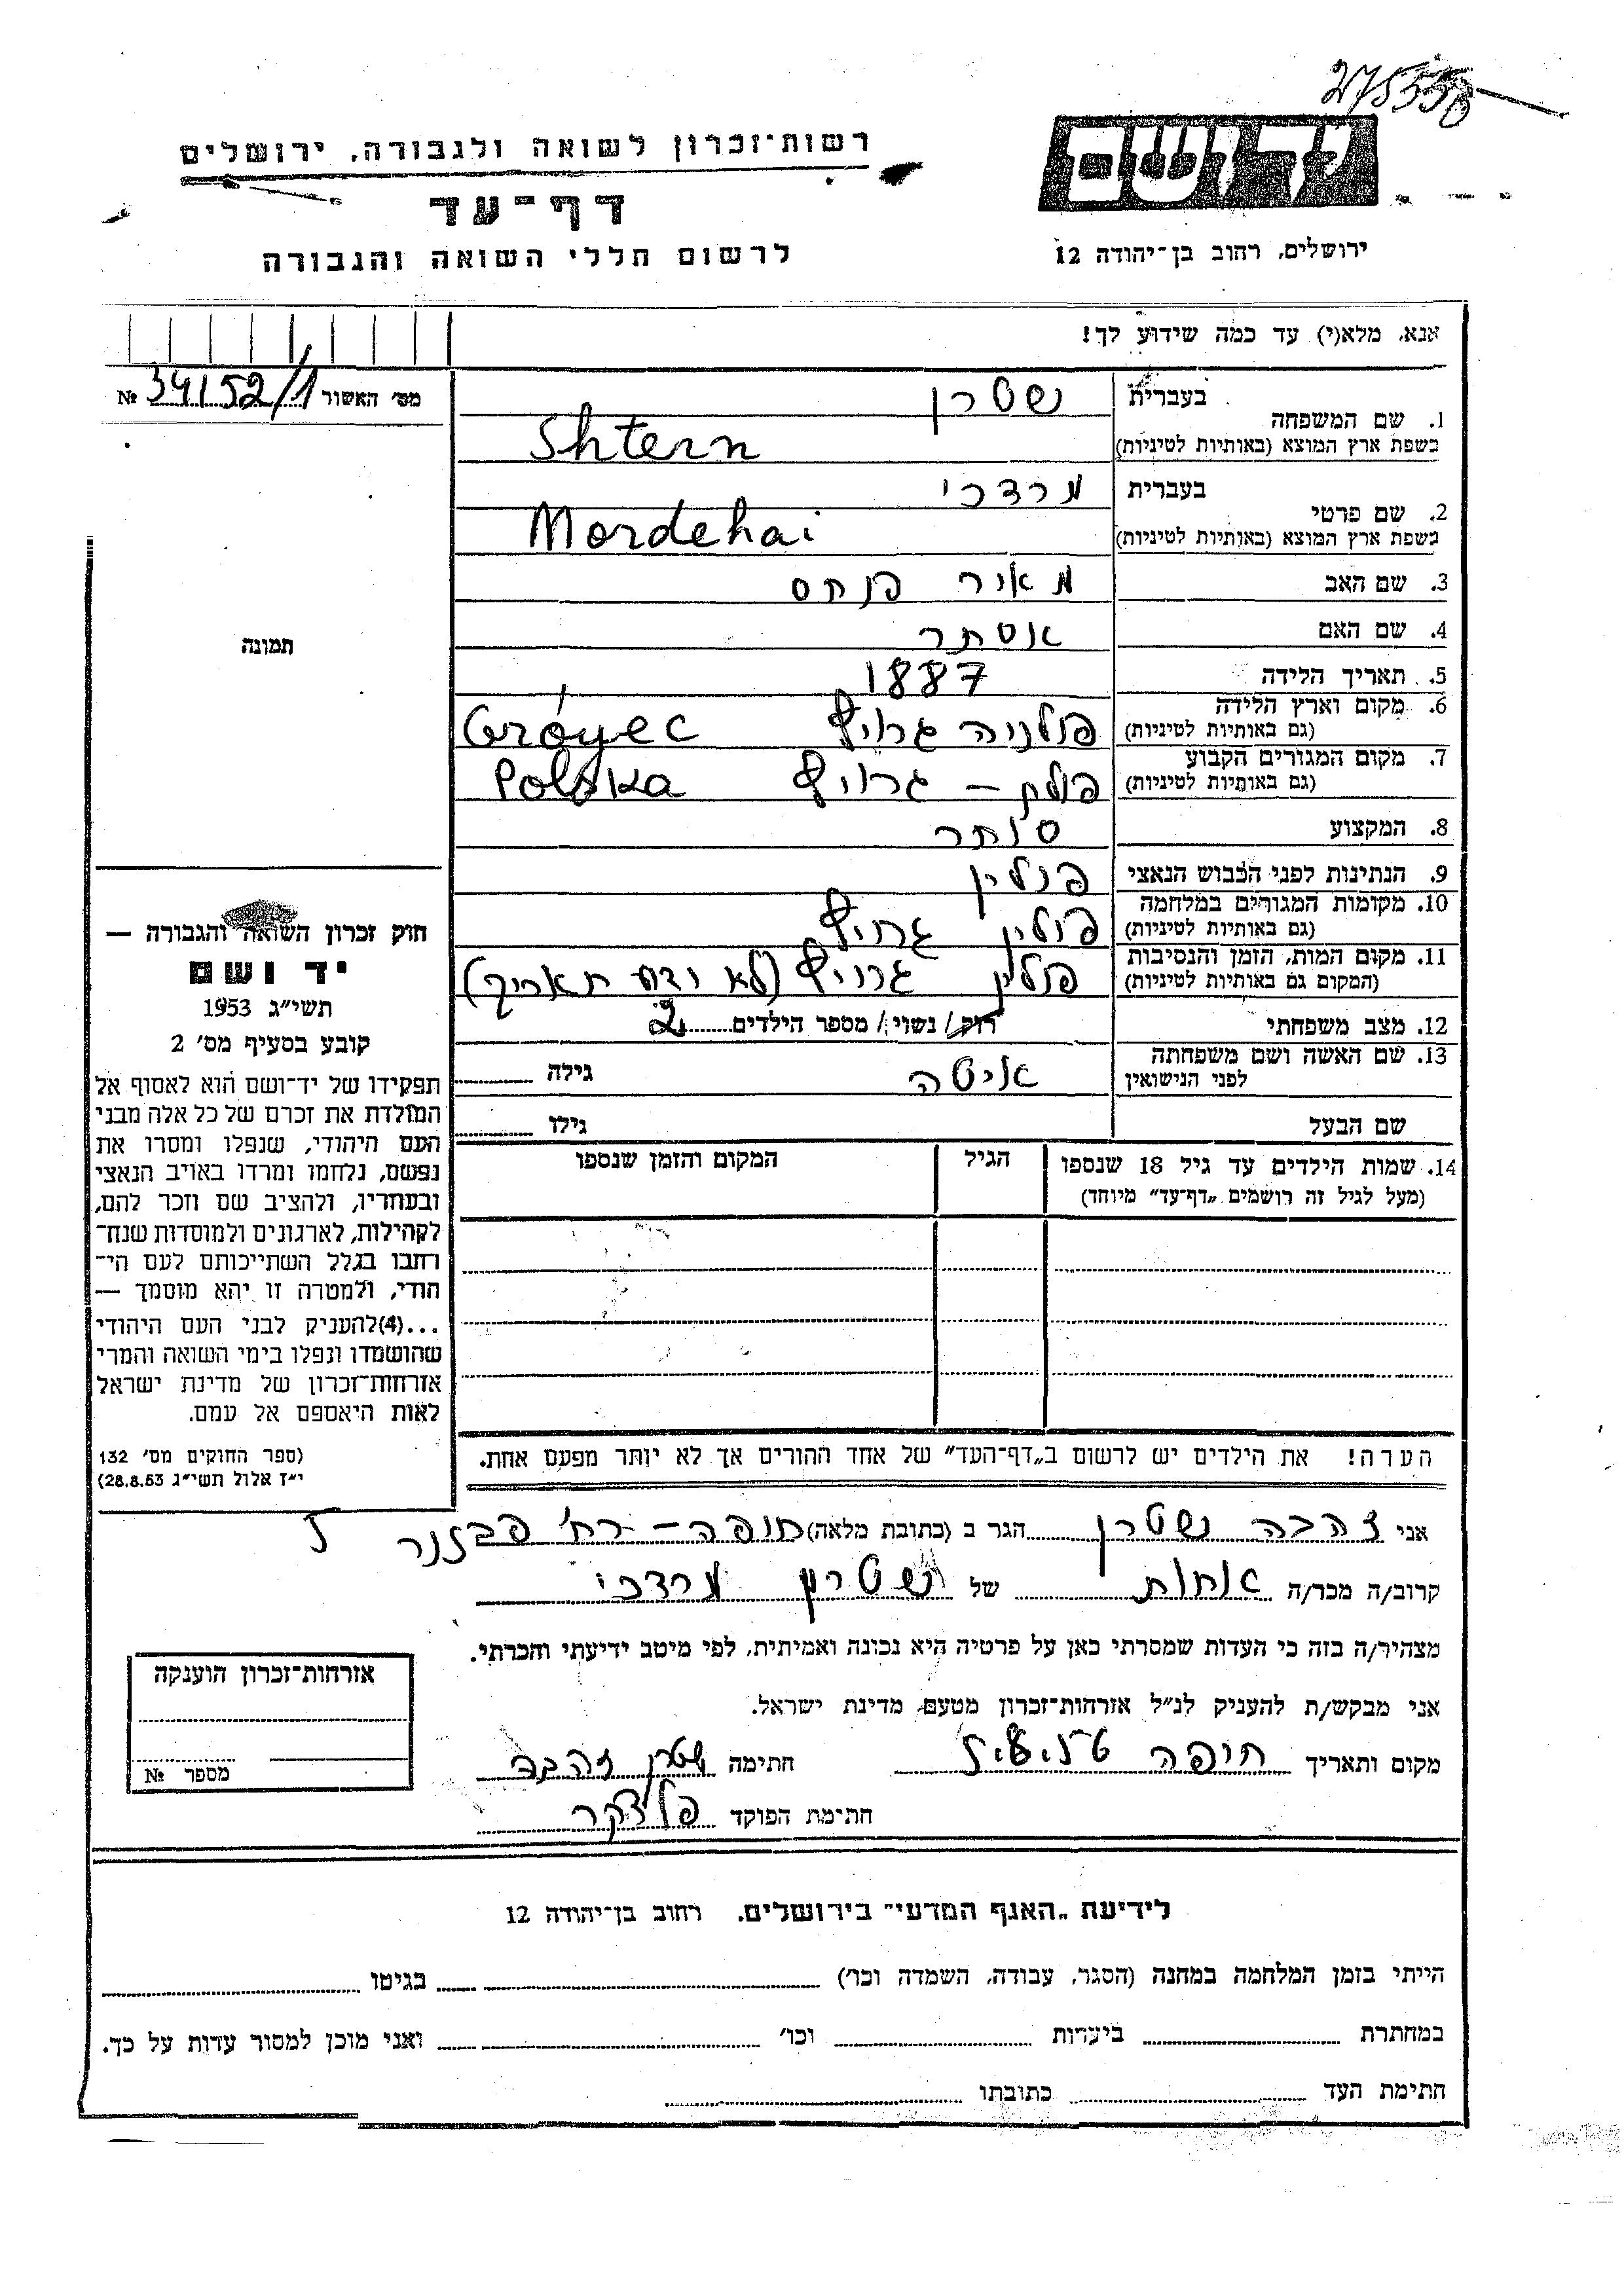 275558
רשות־זכרון לשואה ולגבורה, ירושלים
יד ושם
דף־עד
לרשום חללי השואה והגבורה
ירושלים, רחוב בן־יהודה 12
אנא, מלא(י) עד כמה שידוע לך!
מס׳ האשור № 34152/1
1. שם המשפחה בעברית שטרן
בשפת ארץ המוצא (באותיות לטיניות) Shtern
2. שם פרטי בעברית מרדכי
בשפת ארץ המוצא (באותיות לטיניות) Mordehai
3. שם האב מאיר פנחס
4. שם האם אסתר
5. תאריך הלידה 1887
6. מקום וארץ הלידה (גם באותיות לטיניות) פולניה גרויץ Gróyec
7. מקום המגורים הקבוע (גם באותיות לטיניות) פולין – גרויץ Polska
8. המקצוע סוחר
9. הנתינות לפני הכבוש הנאצי פולין
10. מקומות המגורים במלחמה (גם באותיות לטיניות) פולין גרויץ
11. מקום המות, הזמן והנסיבות (המקום גם באותיות לטיניות) פולין גרויץ (לא ודע תאריך)
12. מצב משפחתי רוק / נשוי / מספר הילדים 2
13. שם האשה ושם משפחתה לפני הנישואין איטה גילה
שם הבעל גילו
14. שמות הילדים עד גיל 18 שנספו
(מעל לגיל זה רושמים „דף־עד״ מיוחד)
הגיל
המקום והזמן שנספו
הערה! את הילדים יש לרשום ב„דף־העד״ של אחד ההורים אך לא יותר מפעם אחת.
תמונה
חוק זכרון השואה והגבורה —
יד ושם
תשי״ג 1953
קובע בסעיף מס׳ 2
תפקידו של יד־ושם הוא לאסוף אל
המולדת את זכרם של כל אלה מבני
העם היהודי, שנפלו ומסרו את
נפשם, נלחמו ומרדו באויב הנאצי
ובעוזריו, ולהציב שם וזכר להם,
לקהילות, לארגונים ולמוסדות שנח־
רבו בגלל השתייכותם לעם הי־
הודי, ולמטרה זו יהא מוסמך —
...(4)להעניק לבני העם היהודי
שהושמדו ונפלו בימי השואה והמרי
אזרחות־זכרון של מדינת ישראל
לאות היאספם אל עמם.
(ספר החוקים מס׳ 132
י״ז אלול תשי״ג 28.8.53)
אני זהבה שטרן הגר ב (כתובת מלאה) חיפה – רח׳ פבזנר 5
קרוב/ה מכר/ה אחות של שטרן מרדכי
מצהיר/ה בזה כי העדות שמסרתי כאן על פרטיה היא נכונה ואמיתית, לפי מיטב ידיעתי והכרתי.
אני מבקש/ת להעניק לנ״ל אזרחות־זכרון מטעם מדינת ישראל.
מקום ותאריך חיפה חתימה שטרן זהבה
חתימת הפוקד
אזרחות־זכרון הוענקה
מספר №
לידיעת „האגף המדעי״ בירושלים, רחוב בן־יהודה 12
הייתי בזמן המלחמה במחנה (הסגר, עבודה, השמדה וכו׳) בגיטו
במחתרת ביערות וכו׳ ואני מוכן למסור עדות על כך.
חתימת העד כתובתו